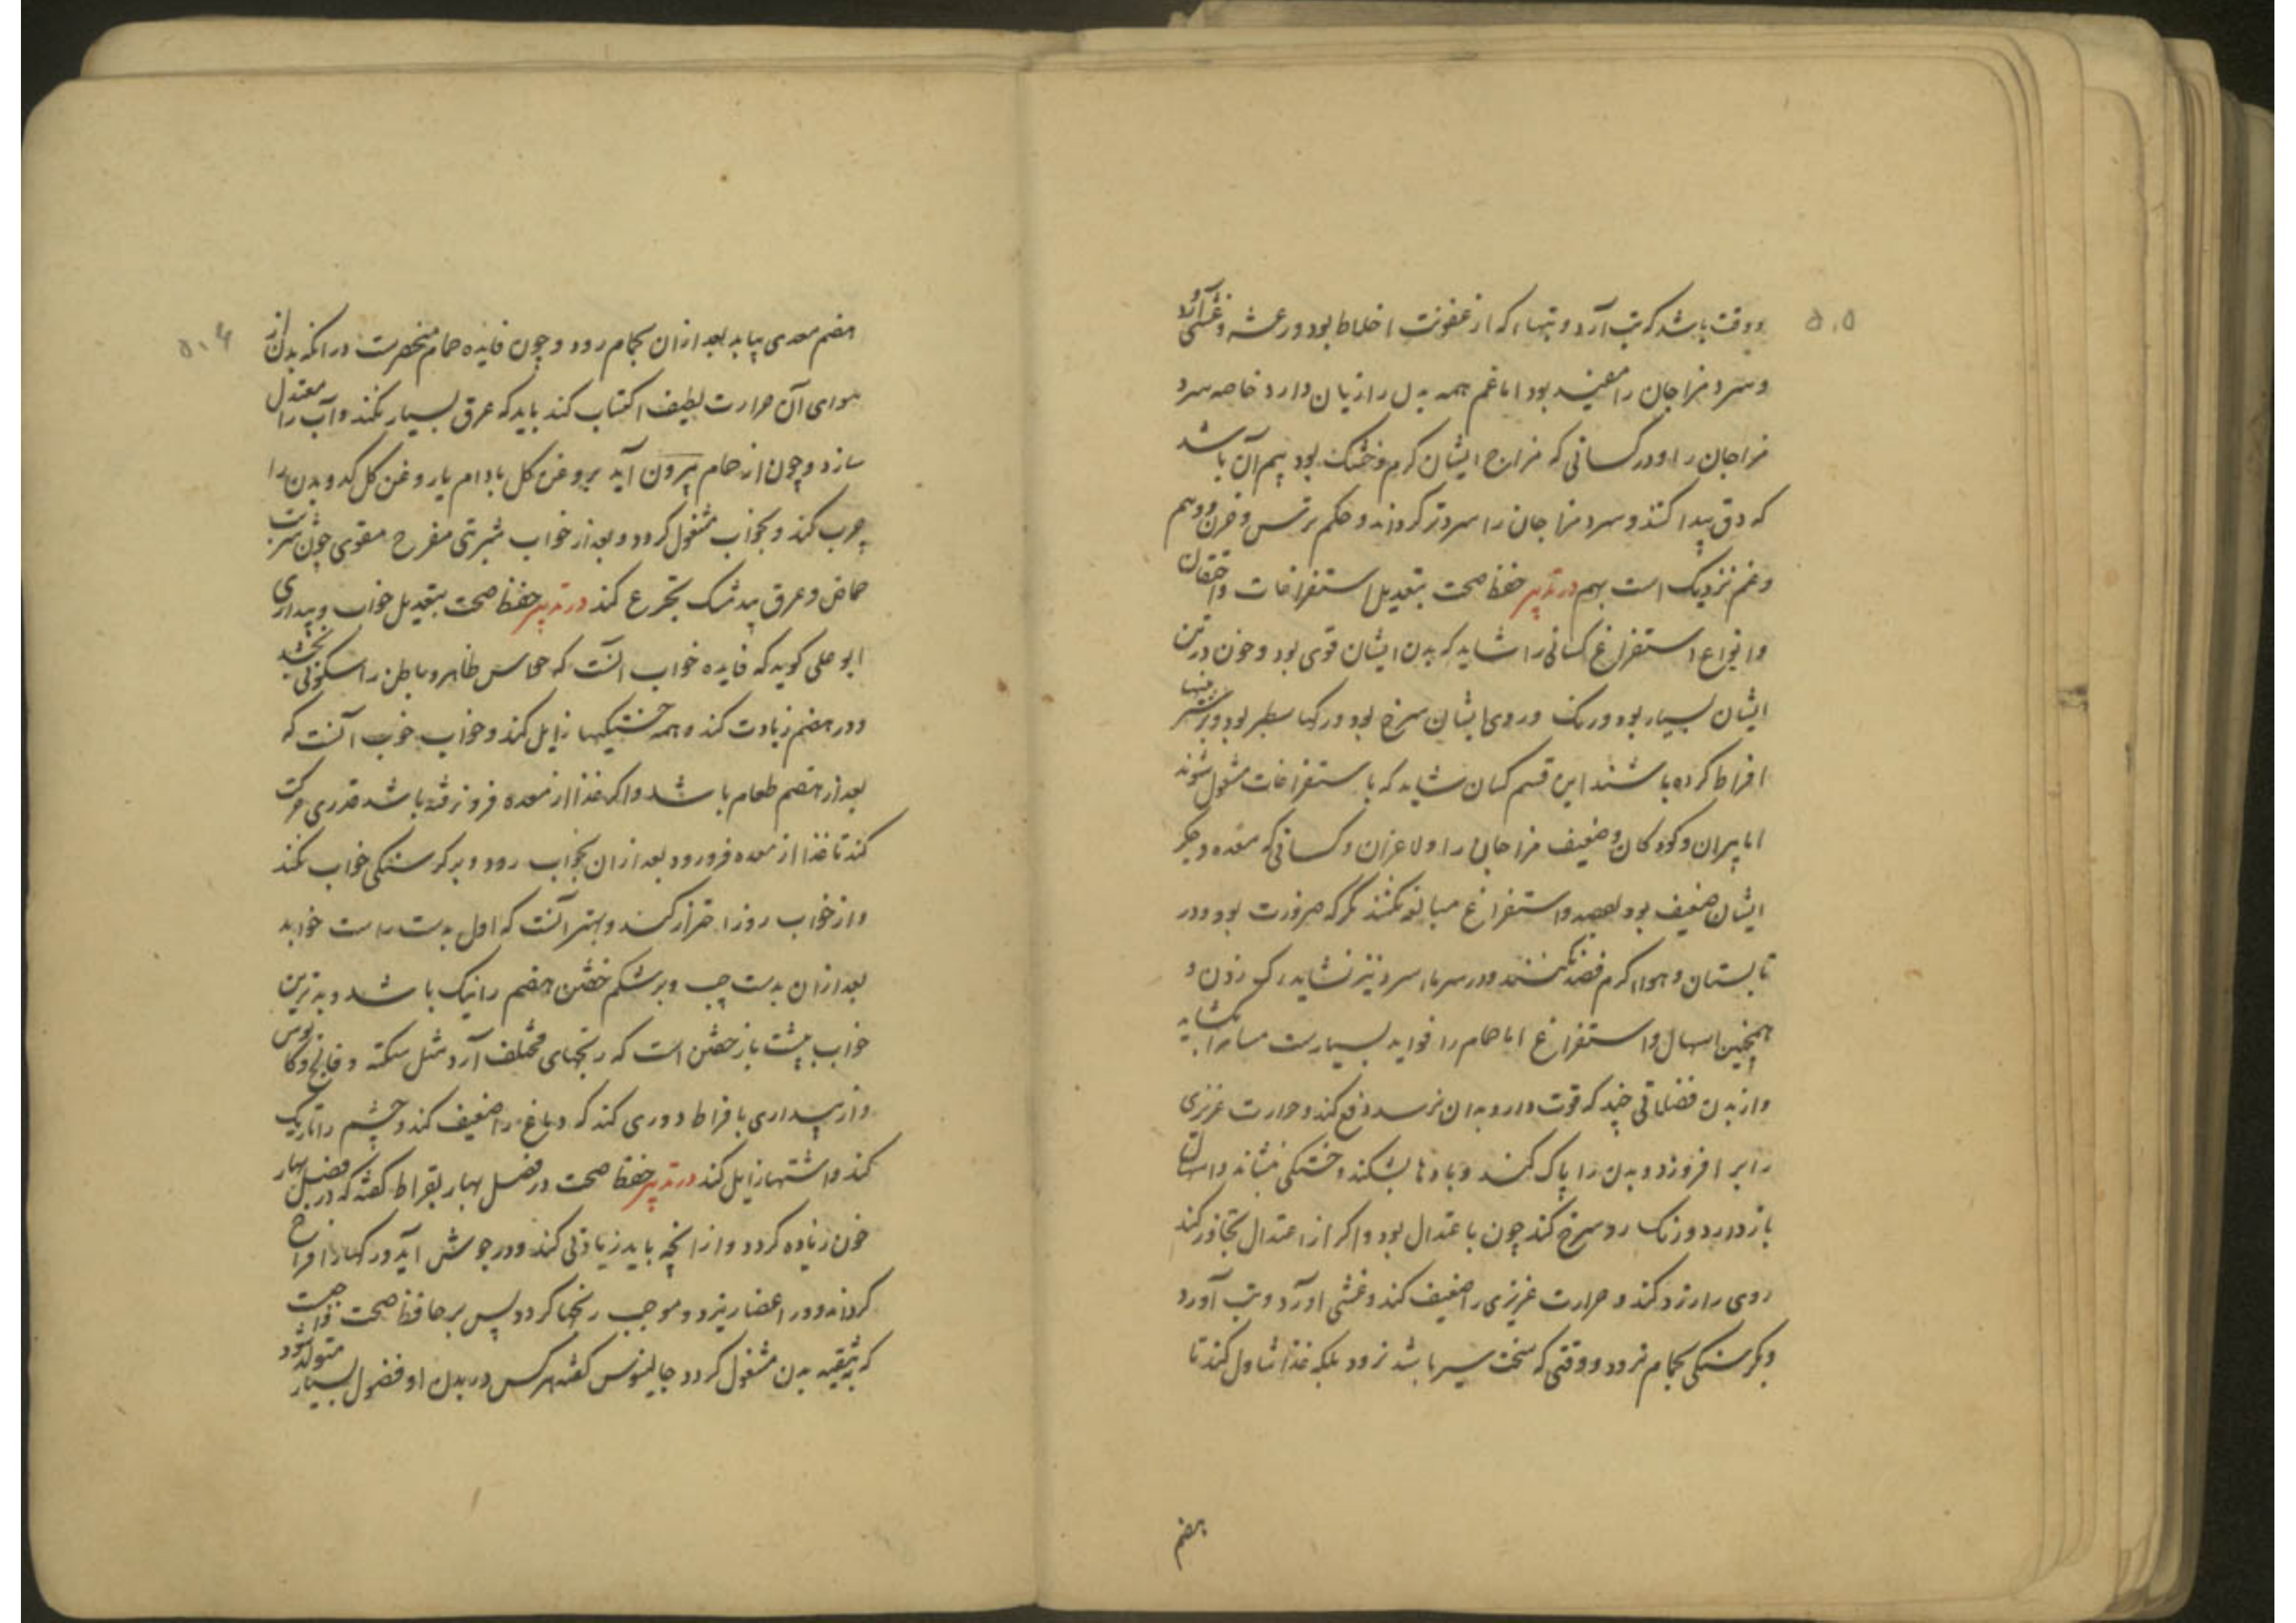 ۵۰۵
ووقت باشد که تب آرد و تبهاء که از عفونت اخلاط بود ورعشه وغشی آرد
وسرد مزاجان را مفید بود اما غم همه بدل را زیان دارد خاصه سرد
مزاجان را ودر کسانی که مزاج ایشان کرم وخشک بود بیم آن باشد
که دق پیدا کند وسرد مزاجان را سردتر کرداند وحکم ترس وحزن ووهم
وغم نزدیک است بهم در تدبیر حفظ صحت بتعدیل استفراغات واحتقان
وانواع استفراغ کسانی را شاید که بدن ایشان قوی بود وخون در تن
ایشان بسیار بود ورنک وروی ایشان سرخ بود ورکها سطبر بود
افراط کرده باشند این قسم کسان شاید که باستفراغات مشغول شوند
اما پیران وکودکان وضعیف مزاجان را ولاغران وکسانی که معده وجکر
ایشان ضعیف بود بفصد واستفراغ مبالغه نکنند مکر که ضرورت بود ودر
تابستان وهواء کرم فصد نکنند ودر سرماء سرد نیز نشاید رک زدن و
همچنین اسهال واستفراغ اما حمام را فواید بسیارست مسام را بکشاید
واز بدن فضلاتی چند که قوت دارو بدان نرسد دفع کند وحرارت غریزی
را بر افروزد وبدن را پاک کند وبادها بشکند وخستکی بنشاند واسهال
باز دارد ورنک رو سرخ کند چون باعتدال بود واکر از اعتدال تجاوز کند
روی را زرد کند وحرارت غریزی را ضعیف کند وغشی آورد وتب آورد
وبکرسنکی بحمام نرود ووقتی که سخت سیر باشد نرود بلکه غذا تناول کند تا
هضم
۵۰۶
هضم معدی بیابد بعد از آن بحمام رود وچون فایده حمام منحصرست در انکه بدن از
هوای آن حرارت لطیف اکتساب کند باید که عرق بسیار نکند وآب را معتدل
سازد وچون از حمام بیرون آید بروغن کل بادام یا روغن کل کدو بدن را
چرب کند وبخواب مشغول کردد وبعد از خواب شربتی مفرح مقوی چون شربت
حماض وعرق بیدمشک تجرع کند در تدبیر حفظ صحت بتعدیل خواب وبیداری
ابوعلی کوید که فایده خواب آنست که حواس ظاهر وباطن را سکونی بخشد
ودر هضم زیادت کند وهمه خستکیها زایل کند وخواب خوب آنست که
بعد از هضم طعام باشد واکر غذا از معده فرو نرفته باشد قدری حرکت
کند تا غذا از معده فرو رود بعد از آن بخواب رود وبر کرسنکی خواب نکند
واز خواب روز احتراز کند وبهتر آنست که اول بدست راست خوابد
بعد از آن بدست چپ وبر شکم خفتن هضم را نیک باشد وبدترین
خواب بپشت باز خفتن است که رنجهای مختلف آرد مثل سکته وفالج وکابوس
واز بیداری بافراط دوری کند که دماغ را ضعیف کند وچشم را تاریک
کند واشتها زایل کند در تدبیر حفظ صحت در فصل بهار بقراط کفته که در فصل بهار
خون زیاده کردد واز آنچه باید زیادتی کند ودر جوش آید ورکها را فراخ
کرداند ودر اعضا ریزد وموجب رنجها کردد پس بر حافظ صحت واجبست
که بتنقیه بدن مشغول کردد جالینوس کفته هرکس در بدن او فضول بسیار متولد شود